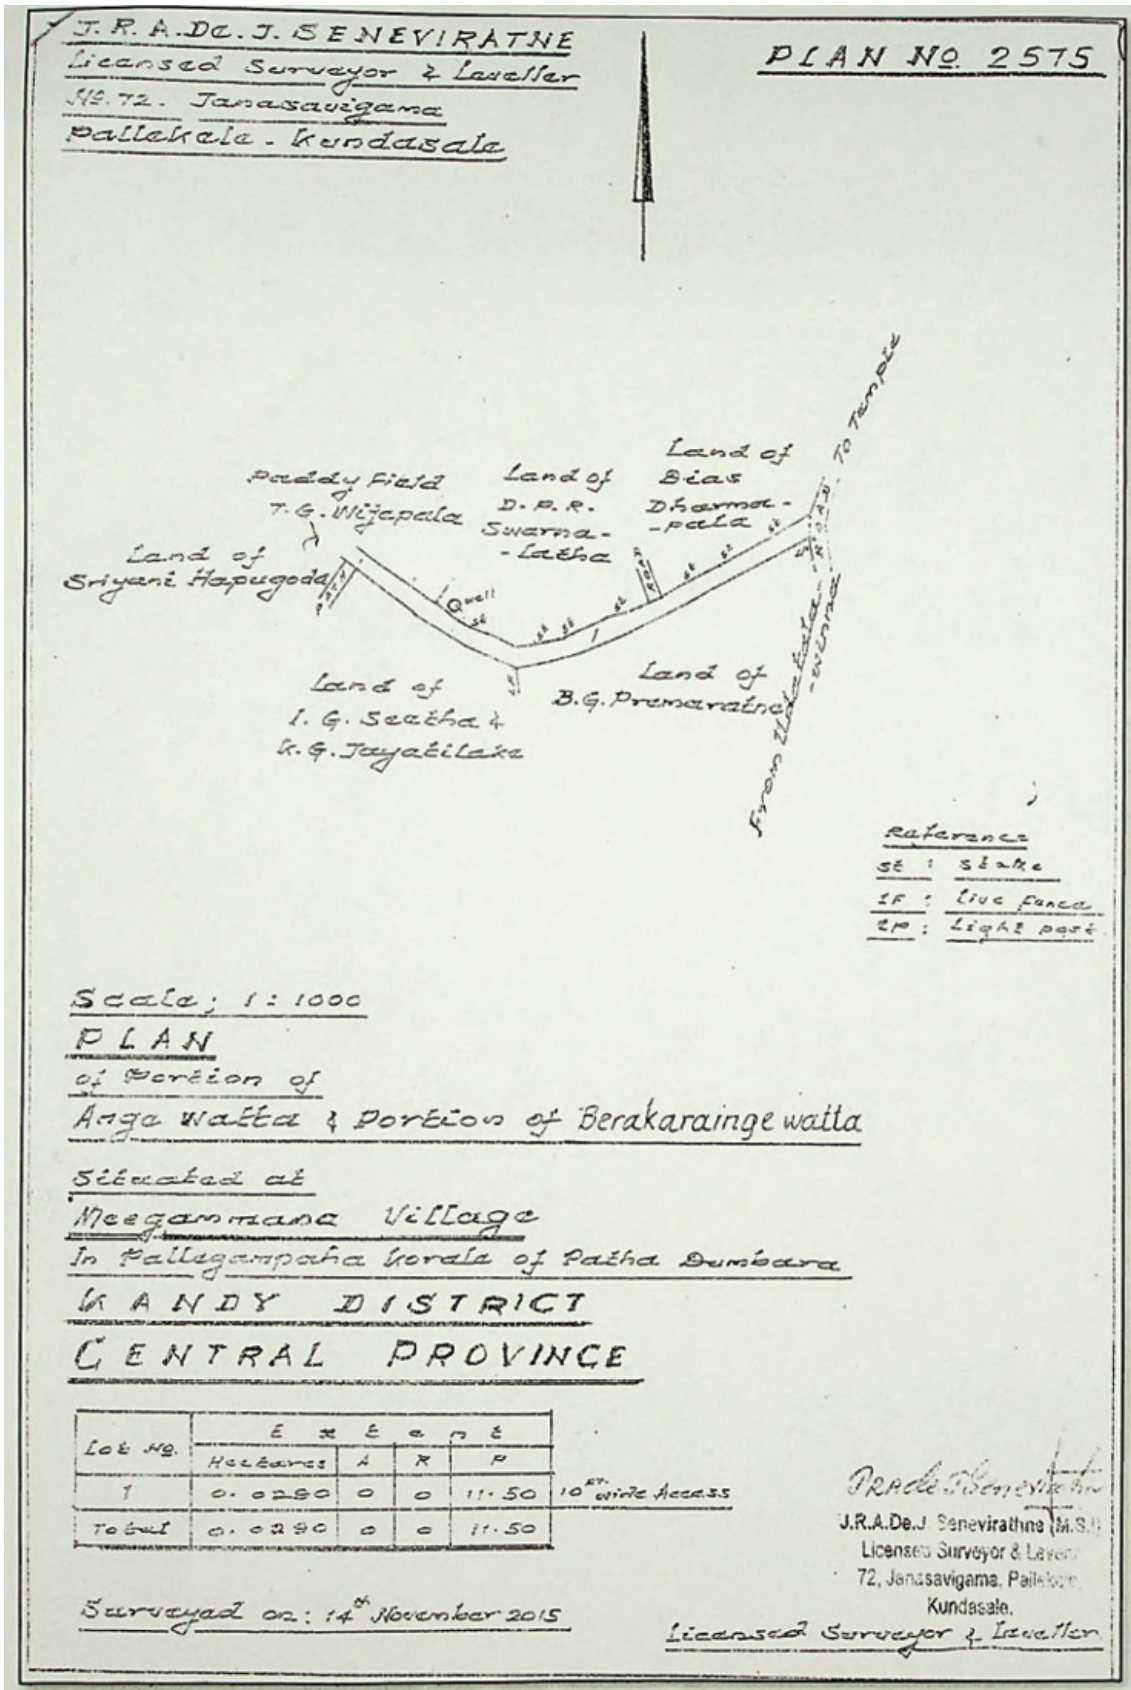 J.R.A.De.J. SENEVIRATNE
Licensed Surveyor & Leveller
No. 72. Janasavigama
Pallekele - Kundasale
PLAN No. 2575
To Temple
Land of
Dias
Dharma-
-pala
Land of
D.P.R.
Swarna-
-latha
Paddy Field
T.G. Wijepala
Land of
Sriyani Hapugoda
PATH
Well
st
st
st
st
ROAD
st
st
st
ROAD
1
LF
Land of
I.G. Seetha &
K.G. Jayatilake
Land of
B.G. Premaratne
From Udatala-
-winna
Reference
st : stake
LF : Live fence
LP : Light post
Scale; 1 : 1000
PLAN
of Portion of
Ange watta & Portion of Berakarainge watta
Situated at
Meegammana Village
In Pallegampaha Korale of Patha Dumbara
KANDY DISTRICT
CENTRAL PROVINCE
Lot No. Extent
Hectares A R P
1 0.0290 0 0 11.50 10 FT. wide Access
Total 0.0290 0 0 11.50
Surveyed on: 14th November 2015
J.R.A.De.J. Senevirathne (M.S.I)
Licensed Surveyor &
72, Janasavigama,
Kundasale.
Licensed Surveyor & Leveller